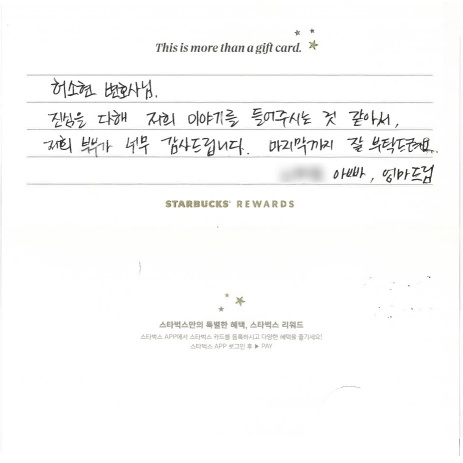 This is more than a gift card.
허소현 변호사님.
진심을 다해 저희 이야기를 들어주시는 것 같아서,
저희 부부가 너무 감사드립니다. 마지막까지 잘 부탁드려요.
아빠, 엄마드림
STARBUCKS® REWARDS
스타벅스만의 특별한 혜택, 스타벅스 리워드
스타벅스 APP에서 스타벅스 카드를 등록하시고 다양한 혜택을 즐기세요!
스타벅스 APP 로그인 후 ▶ PAY